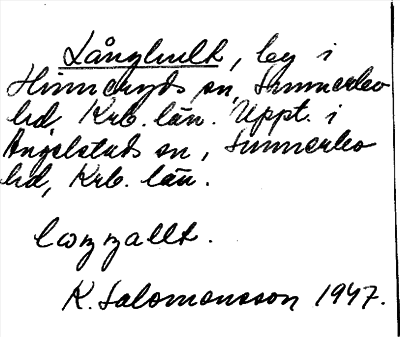 Långhult, by i
Hinneryds sn, Sunnerbo
hd, Krb. län. Uppt. i
Angelstads sn, Sunnerbo
hd, Krb. län.
K. Salomonsson 1947.